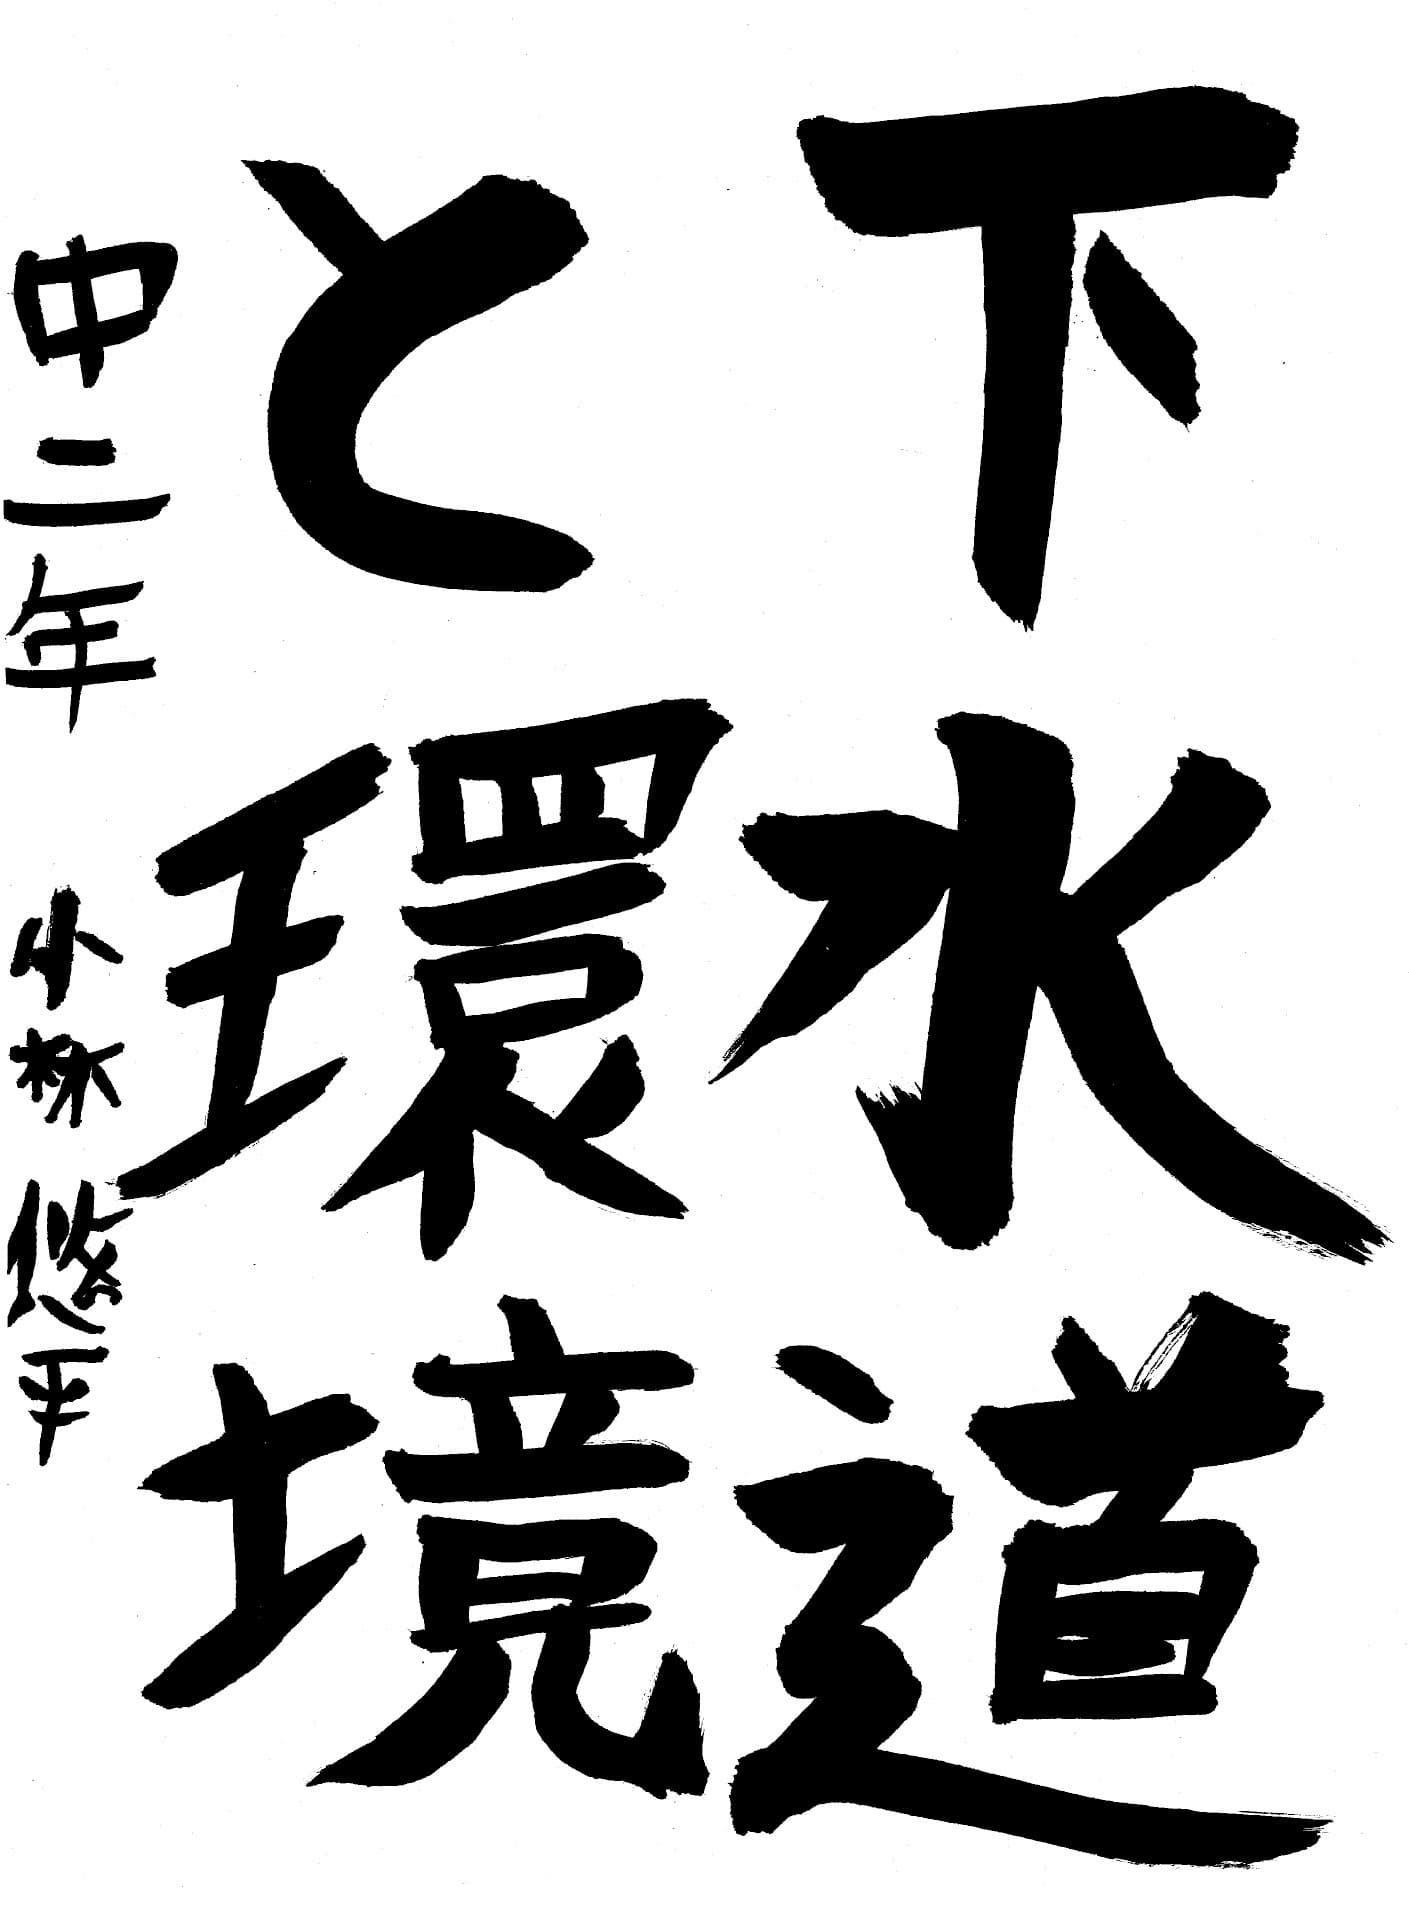 下水道
と環境
中二年 小林悠平